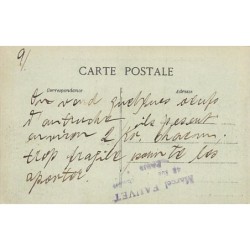 9/
CARTE POSTALE
Correspondance Adresse
On vend quelques oeufs
d'autruche, ils pèsent
environ 2 K. chacun,
trop fragile pour te les
apporter.
Marcel FAUVET
48
PARIS